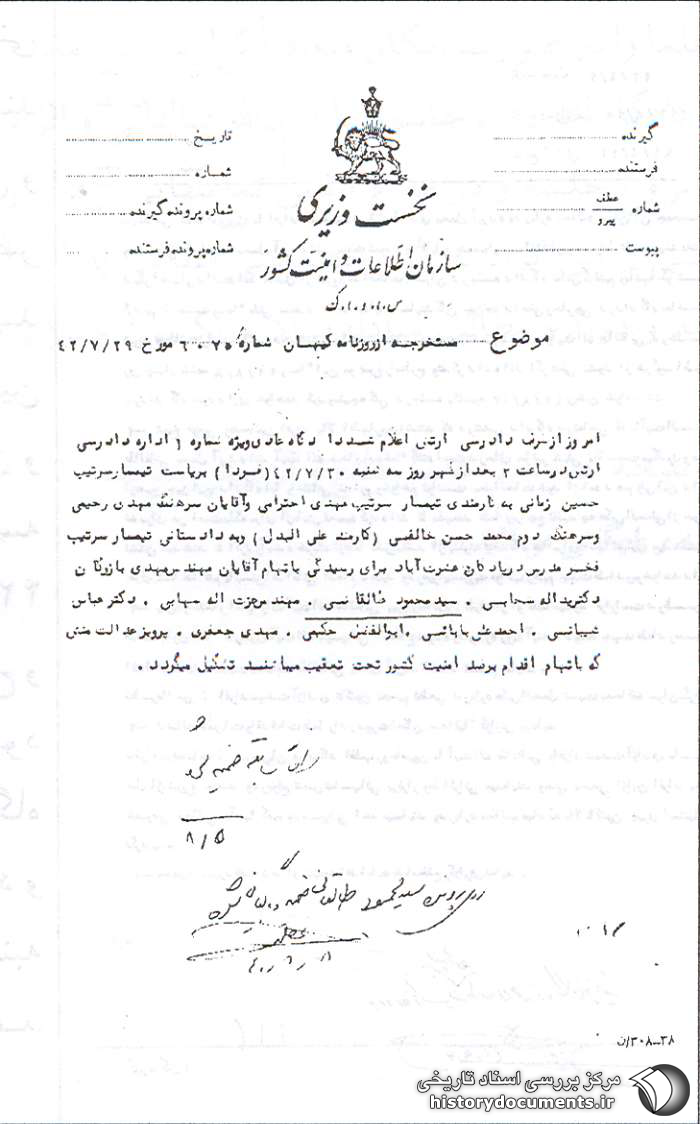 گیرنده
تاریخ
فرستنده
شماره
شماره عطف پیرو
شماره پرونده گیرنده
پیوست
شماره پرونده فرستنده
نخست وزیری
سازمان اطلاعات و امنیت کشور
س.ا.و.ا.ک
موضوع مستخرجه از روزنامه کیهان شماره ۶۰۷۵ مورخ ۴۲/۷/۲۹
امروز از طرف دادرسی ارتش اعلام شد دادگاه عادی ویژه شماره ۱ اداره دادرسی
ارتش در ساعت ۲ بعد از ظهر روز سه شنبه ۴۲/۷/۳۰ (فردا) بریاست تیمسار سرتیپ
حسین زمانی به کارمندی تیمسار سرتیپ مهدی احترامی و آقایان سرهنگ مهدی رحیمی
و سرهنگ دوم محمد حسن خالقی (کارمند علی البدل) و به دادستانی تیمسار سرتیپ
فخر مدرس در پادگان عشرت آباد برای رسیدگی باتهام آقایان مهندس مهدی بازرگان
دکتر یداله سحابی . سید محمود طالقانی . مهندس عزت اله سحابی . دکتر عباس
شیبانی . احمد علی بابائی . ابوالفضل حکیمی . مهدی جعفری . پرویز عدالت منش
که باتهام اقدام بر ضد امنیت کشور تحت تعقیب میباشند تشکیل میگردد .
۸/۵
سید محمود طالقانی ضمیمه و بایگانی شود
۳۰۸-۳۸/ن
مرکز بررسی اسناد تاریخی
historydocuments.ir